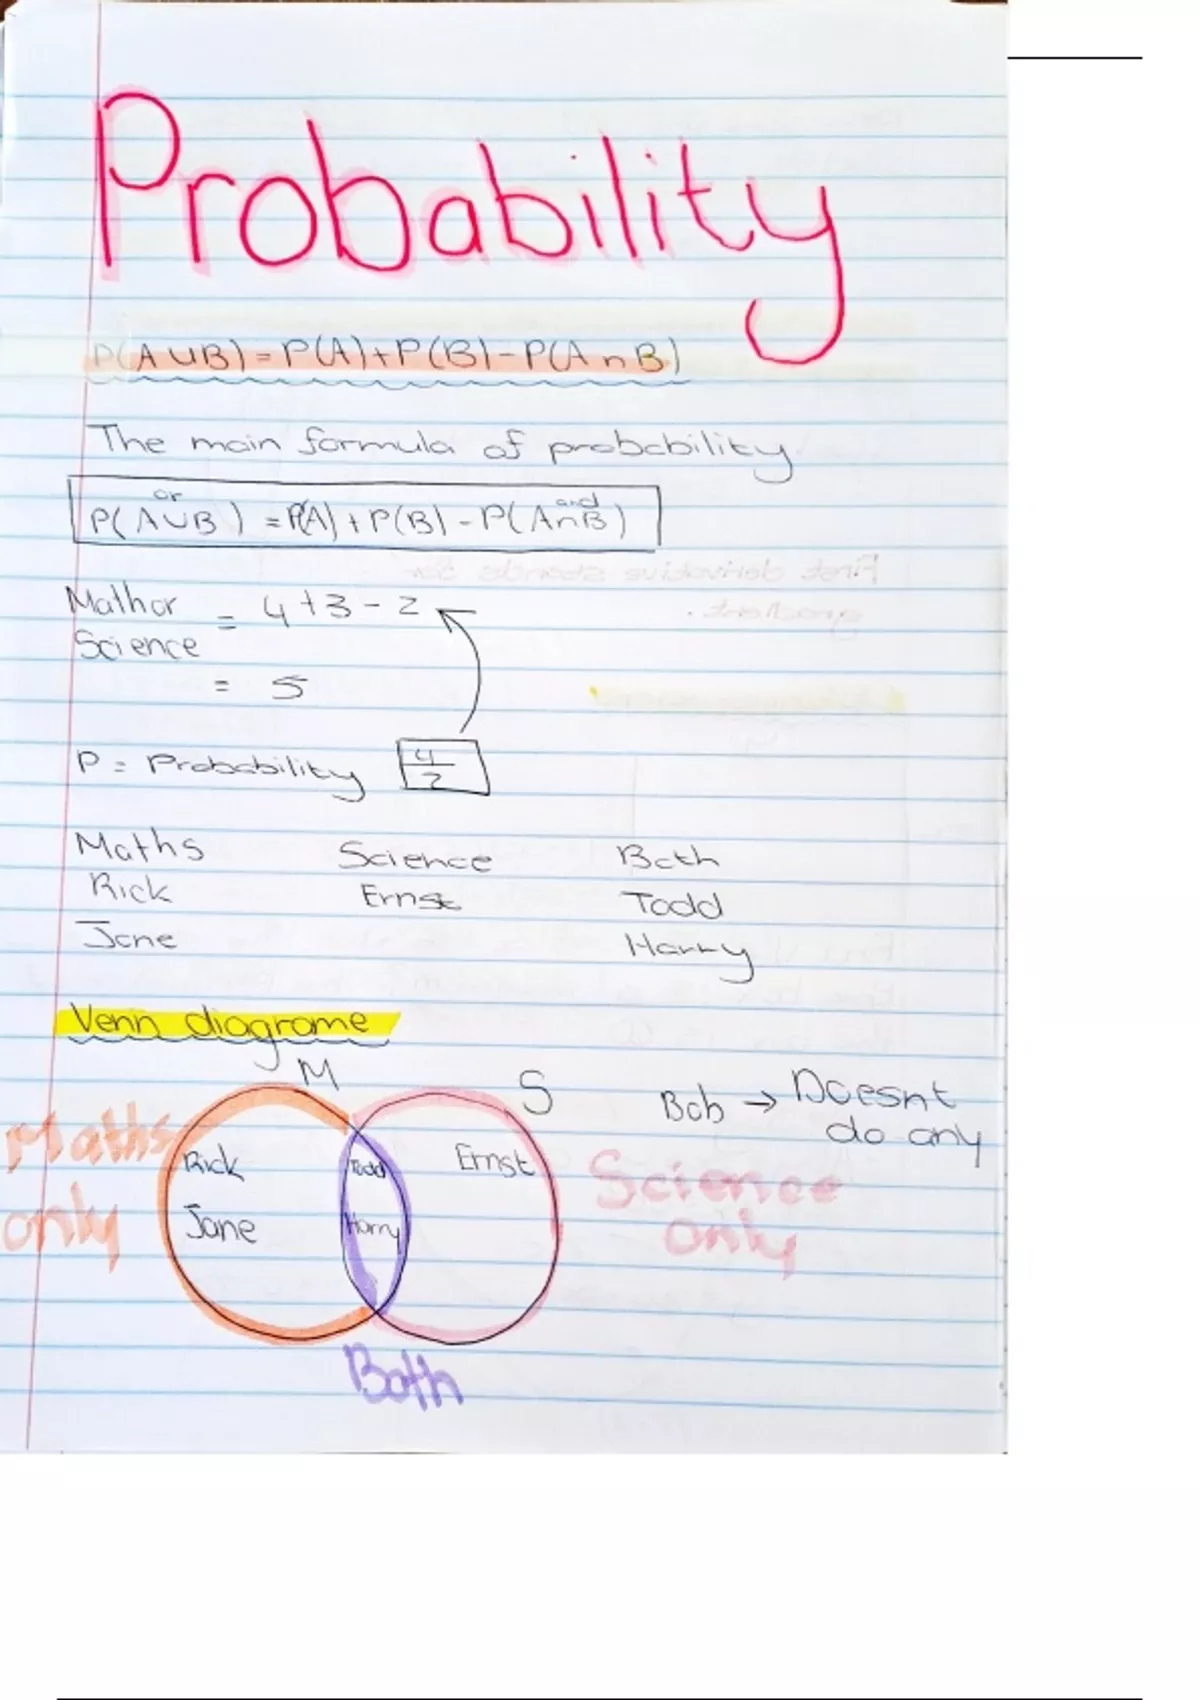 Probability
P(A∪B) = P(A)+P(B)-P(A∩B)
The main formula of probability
or and
P(A∪B) = P(A) + P(B) - P(A∩B)
Mathor = 4+3-2
Science
= 5
P = Probability 4/2
Maths Science Both
Rick Ernst Todd
Jane Harry
Venn diagrame
M S
Bob → Doesnt
do any
Maths only
Rick Todd Ernst
Jane Harry
Science only
Both